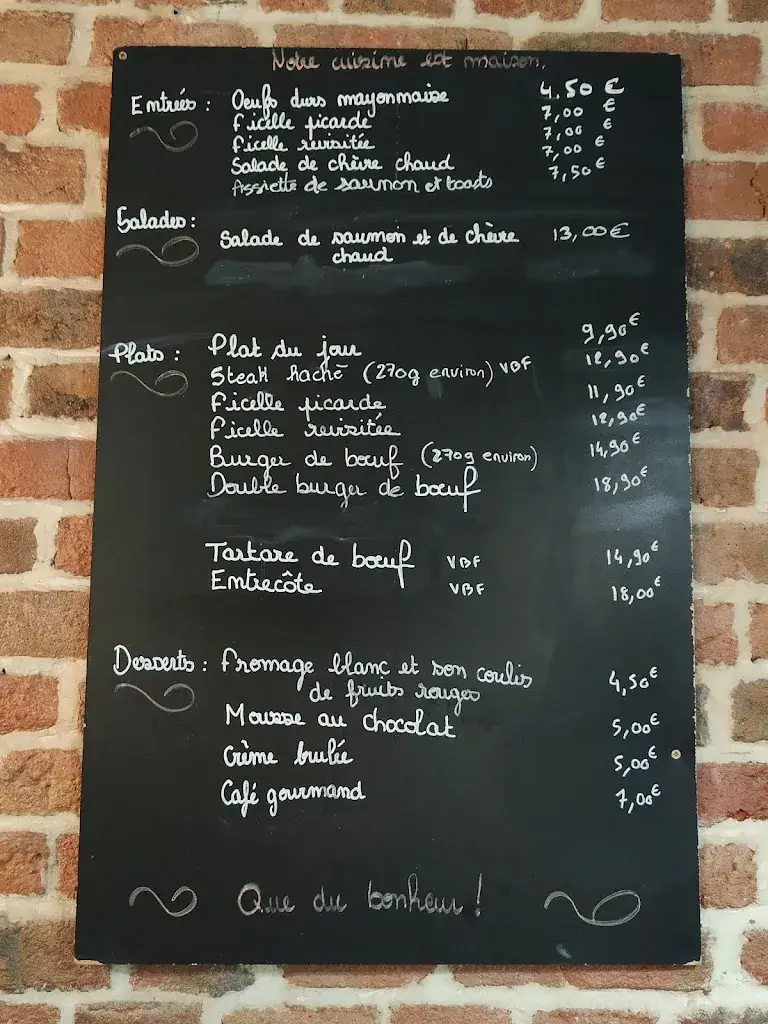 Notre cuisine est maison.
Entrées : Oeufs durs mayonnaise 4.50 €
Ficelle picarde 7,00 €
Ficelle revisitée 7,00 €
Salade de chèvre chaud 7,00 €
Assiette de saumon et toasts 7,50 €
Salades : Salade de saumon et de chèvre 13,00 €
chaud
Plats : Plat du jour 9,90 €
Steak haché (270g environ) VBF 12,90 €
Ficelle picarde 11,90 €
Ficelle revisitée 12,90 €
Burger de bœuf (270g environ) 14,90 €
Double burger de bœuf 18,90 €
Tartare de bœuf VBF 14,90 €
Entrecôte VBF 18,00 €
Desserts : Fromage blanc et son coulis
de fruits rouges 4,50 €
Mousse au chocolat 5,00 €
Crème brulée 5,00 €
Café gourmand 7,00 €
Que du bonheur !